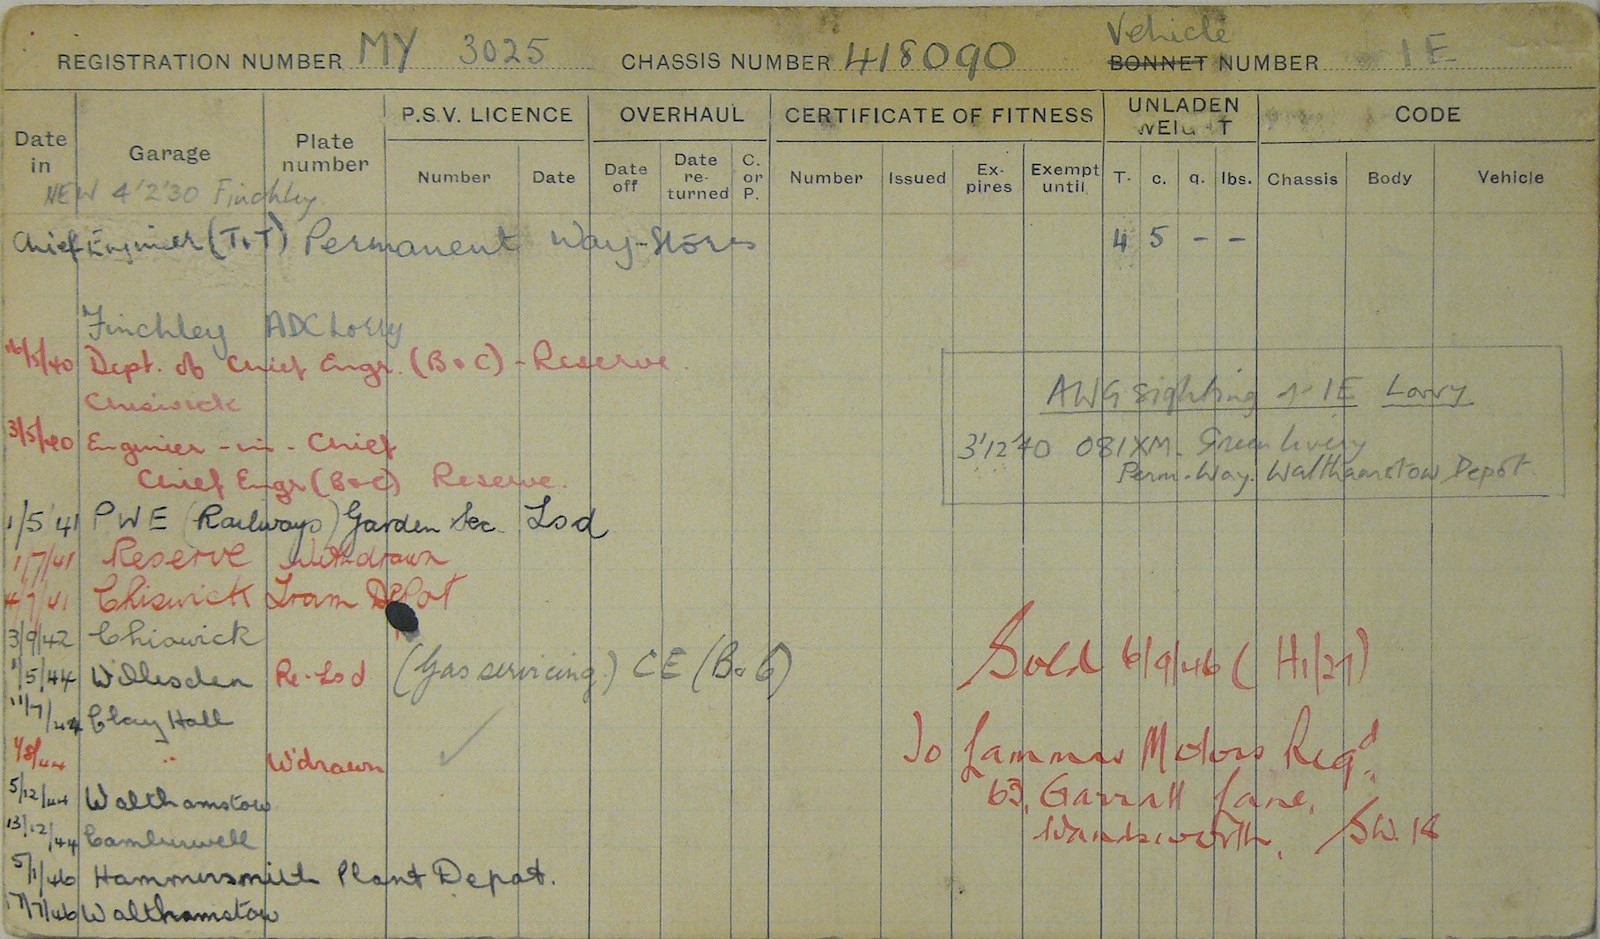 Vehicle
REGISTRATION NUMBER MY 3025 CHASSIS NUMBER 418090 BONNET NUMBER 1E
Date in Garage Plate number P.S.V. LICENCE OVERHAUL CERTIFICATE OF FITNESS UNLADEN WEIGHT CODE
Number Date Date off Date re-turned C. or P. Number Issued Ex-pires Exempt until T. c. q. lbs. Chassis Body Vehicle
NEW 4'2'30 Finchley.
Chief Engineer (T&T) Permanent Way-Stores 4 5 - -
Finchley ADC Lorry
16/5/40 Dept. of Chief Engr. (B&C) - Reserve.
Chiswick
3/5/40 Engineer-in-Chief
Chief Engr (B&C) Reserve.
AWG sighting of 1E Lorry
3'12'40 081XM. Green livery
Perm. Way. Walthamstow Depot.
1/5/41 PWE (Railways) Garden Sec. Lsd
1/7/41 Reserve Withdrawn
4/7/41 Chiswick Tram Depot
3/9/42 Chiswick
1/5/44 Willesden Re-Lsd (Gas servicing.) CE (B&C)
11/7/44 Clay Hall
1/8/44 " W'drawn
5/12/44 Walthamstow
13/12/44 Camberwell
5/1/46 Hammersmith Plant Depot.
17/7/46 Walthamstow
Sold 6/9/46 (H1/27)
To Lammas Motors Reg'd.
63, Garratt Lane,
Wandsworth, SW.18